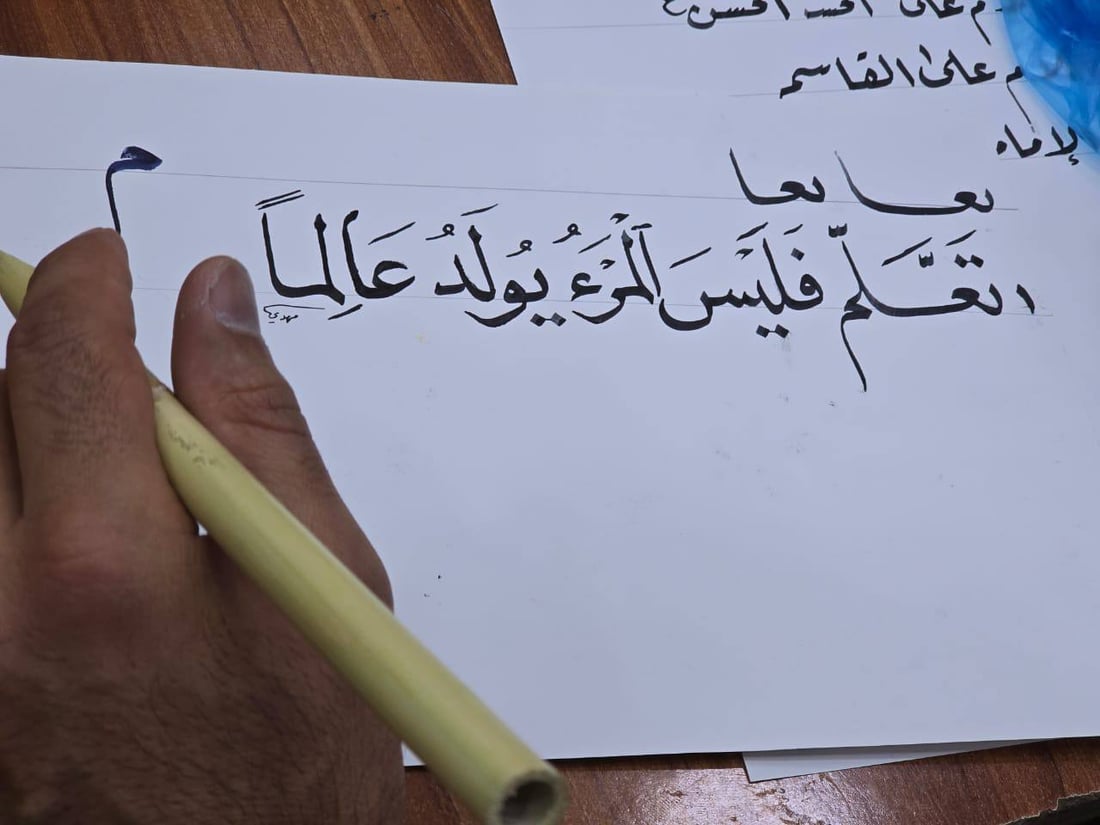 على
م على القاسم
الإمام
م
بعا بعا
ا تَعَلَّمْ فَلَيْسَ اَلْمَرْءُ يُولَدُ عَالِماً
مهدي